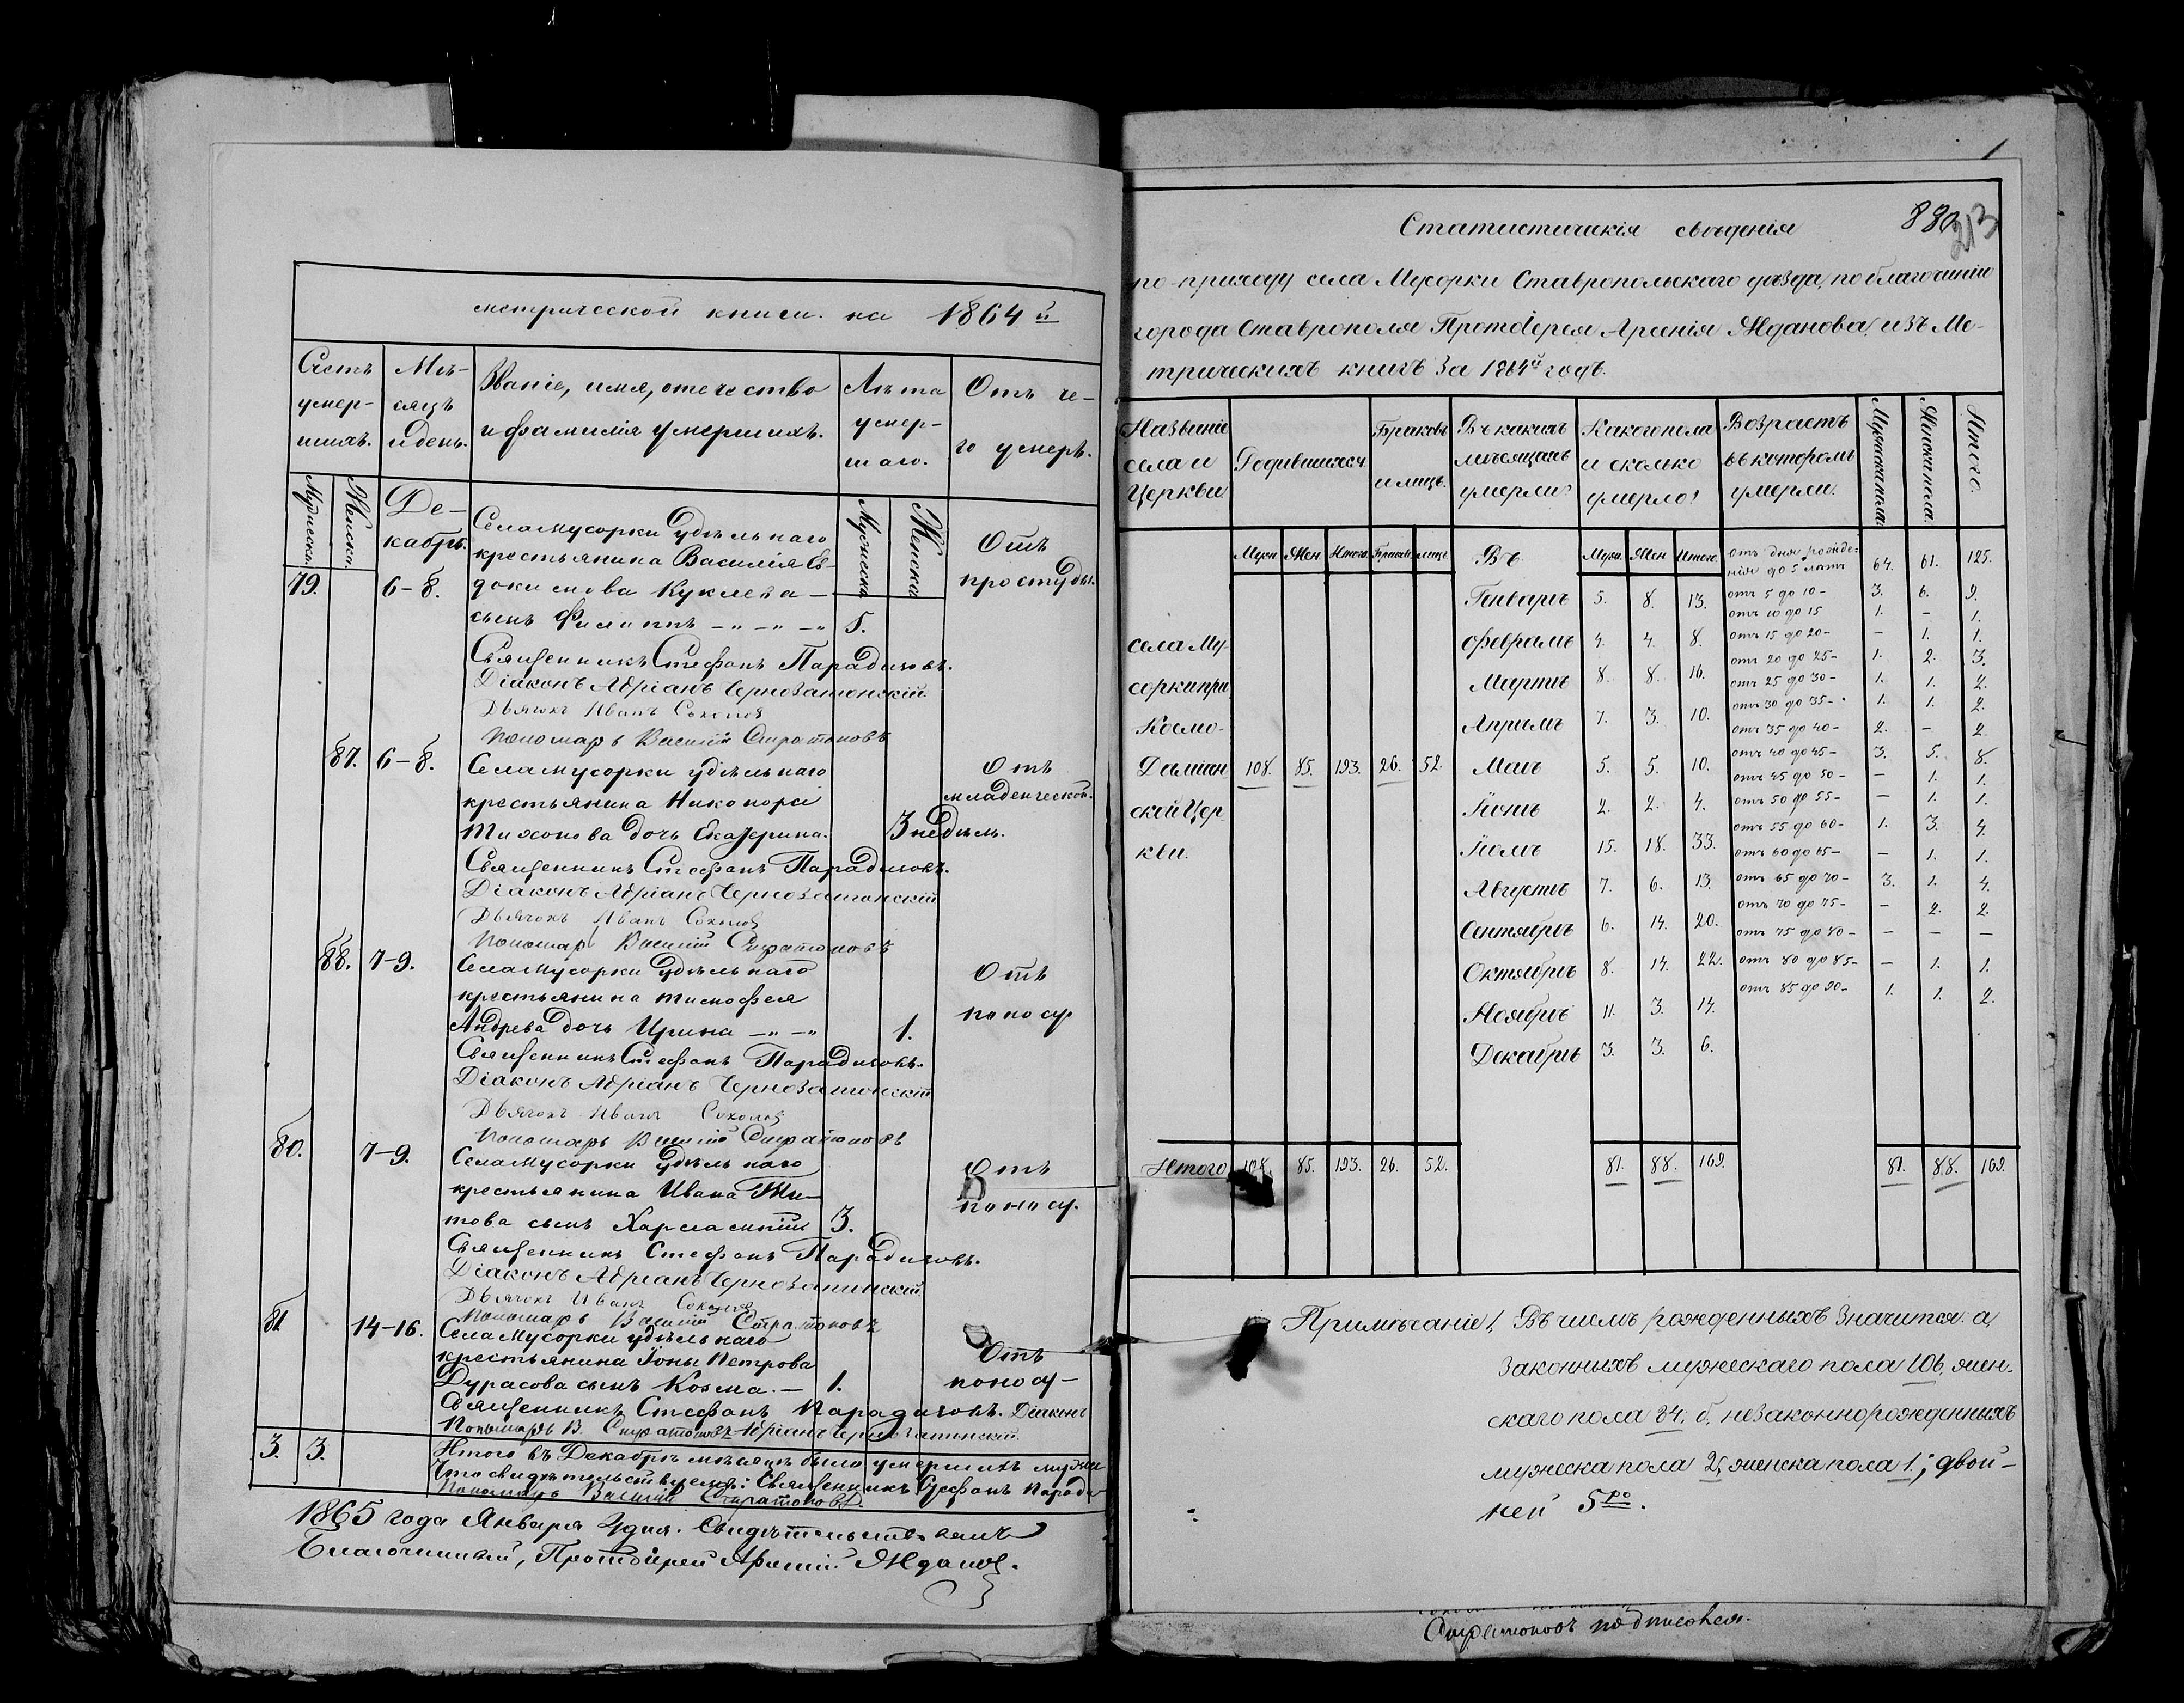 метрической книги. на 1864й
Счетъ умер-шихъ.
Мѣ-сяцъ и день.
Званіе, имя, отечество и фамилія умершихъ.
Лѣта умер-шаго.
Отъ че-го умеръ.
Мужеска.
Женска.
Де-кабрь.
Мужеска
Женска
Села Мусорки удѣльнаго
крестьянина Василія Ев-
79. 6–8. докимова Куклева —
сынъ Филиппъ 5.
Отъ простуды.
Священникъ Стефанъ Парадизовъ.
Діаконъ Адріанъ Чернозатонскій
Дьячокъ Иванъ Соколов
Пономарь Василій Стратоновъ
87. 6–8. Села Мусорки удѣльнаго
крестьянина Никонора
Тихонова дочь Екатерина. 3 недѣль.
Отъ младенческой.
Священникъ Стефанъ Парадизовъ.
Діаконъ Адріанъ Чернозатонскій
Дьячокъ Иванъ Соколов
Пономарь Василій Стратоновъ
88. 7–9. Села Мусорки удѣльнаго
крестьянина Тимофея
Андрева дочь Ирина 1.
Отъ поносу
Священникъ Стефанъ Парадизовъ.
Діаконъ Адріанъ Чернозатонскій
Дьячокъ Иванъ Соколов
Пономарь Василій Стратоновъ
80. 7–9. Села Мусорки удѣльнаго
крестьянина Ивана Ти-
това сынъ Харлампій 3.
Отъ поносу.
Священникъ Стефанъ Парадизовъ.
Діаконъ Адріанъ Чернозатонскій
Дьячокъ Иванъ Соколов
Пономарь Василій Стратоновъ
81 14–16. Села Мусорки удѣльнаго
крестьянина Іоны Петрова
Дурасова сынъ Козма. — 1.
Отъ поносу —
Священникъ Стефанъ Парадизовъ. Діаконъ
Пономарь В. Стратоновъ Адріанъ Чернозатонскій
3. 3. Итого въ Декабрѣ мѣсяцѣ было умершихъ мужес
Что свидѣтельствуемъ: Священникъ Стефанъ Паради-
Пономарь Василій Стратоновъ.
1865 года Января 4 дня. Свидѣтельствовалъ
Благочинный, Протоіерей Арсеній Ждановъ.
880
213
Статистическія свѣденія
по приходу села Мусорки Ставропольскаго уѣзда, по благочинію
города Ставрополя Протоіерея Арсенія Жданова, изъ Ме-
трическихъ книгъ за 1864й годъ.
Названіе села и Церкви.
Родившихся.
Браковъ и лицъ.
Въ какихъ мѣсяцахъ умерли?
Какого пола и сколько умерло?
Возрастъ въ которомъ умерли.
Мужеска пола.
Женска пола.
Итого.
Муж. Жен. Итого. Браковъ лицъ. Въ Муж. Жен. Итого.
села Му-
сорки при
Космо-
Даміан
ской Цер
кви.
108. 85. 193. 26. 52.
Генварѣ 5. 8. 13.
Февралѣ 4. 4. 8.
Мартѣ 8. 8. 16.
Апрѣлѣ 7. 3. 10.
Маѣ 5. 5. 10.
Іюнѣ 2. 2. 4.
Іюлѣ 15. 18. 33.
Августѣ 7. 6. 13.
Сентябрѣ 6. 14. 20.
Октябрѣ 8. 14. 22.
Ноябрѣ 11. 3. 14.
Декабрѣ 3. 3. 6.
отъ дня рожде-
нія до 5 лѣтъ 64. 61. 125.
отъ 5 до 10 – 3. 6. 9.
отъ 10 до 15 1. – 1.
отъ 15 до 20 – – 1. 1.
отъ 20 до 25 – 1. 2. 3.
отъ 25 до 30 – 1. 1. 2.
отъ 30 до 35 – 1. 1. 2.
отъ 35 до 40 – 2. – 2.
отъ 40 до 45 – 3. 5. 8.
отъ 45 до 50 – – 1. 1.
отъ 50 до 55 – – 1. 1.
отъ 55 до 60 – 1. 3. 4.
отъ 60 до 65 – – 1. 1.
отъ 65 до 70 – 3. 1. 4.
отъ 70 до 75 – – 2. 2.
отъ 75 до 80 – – – –
отъ 80 до 85 – – 1. 1.
отъ 85 до 90 – 1. 1. 2.
Итого 108. 85. 193. 26. 52. 81. 88. 169. 81. 88. 169.
Примѣчаніе 1, Въ числѣ рожденныхъ значится: а,
законныхъ мужескаго пола 106, жен-
скаго пола 84; б, незаконнорожденныхъ
мужеска пола 2, женска пола 1; двой-
ней 5ро.
Стратоновъ подписался.